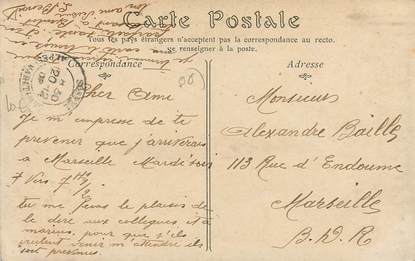 Carte Postale
Tous les pays étrangers n'acceptent pas la correspondance au recto.
se renseigner à la poste.
Correspondance
Adresse
Cher Ami
Je m'empresse de te
prevenir que j'arriverais
a Marseille Mardi soir
Vers 7 H 1/2
tu me feras le plaisir de
le dire aux collegues et à
marius. pour que s'ils
veulent venir m'attendre ils
soit prevenus.
Monsieur
Alexandre Baille
113 Rue d'Endoume
Marseille
B. D. R